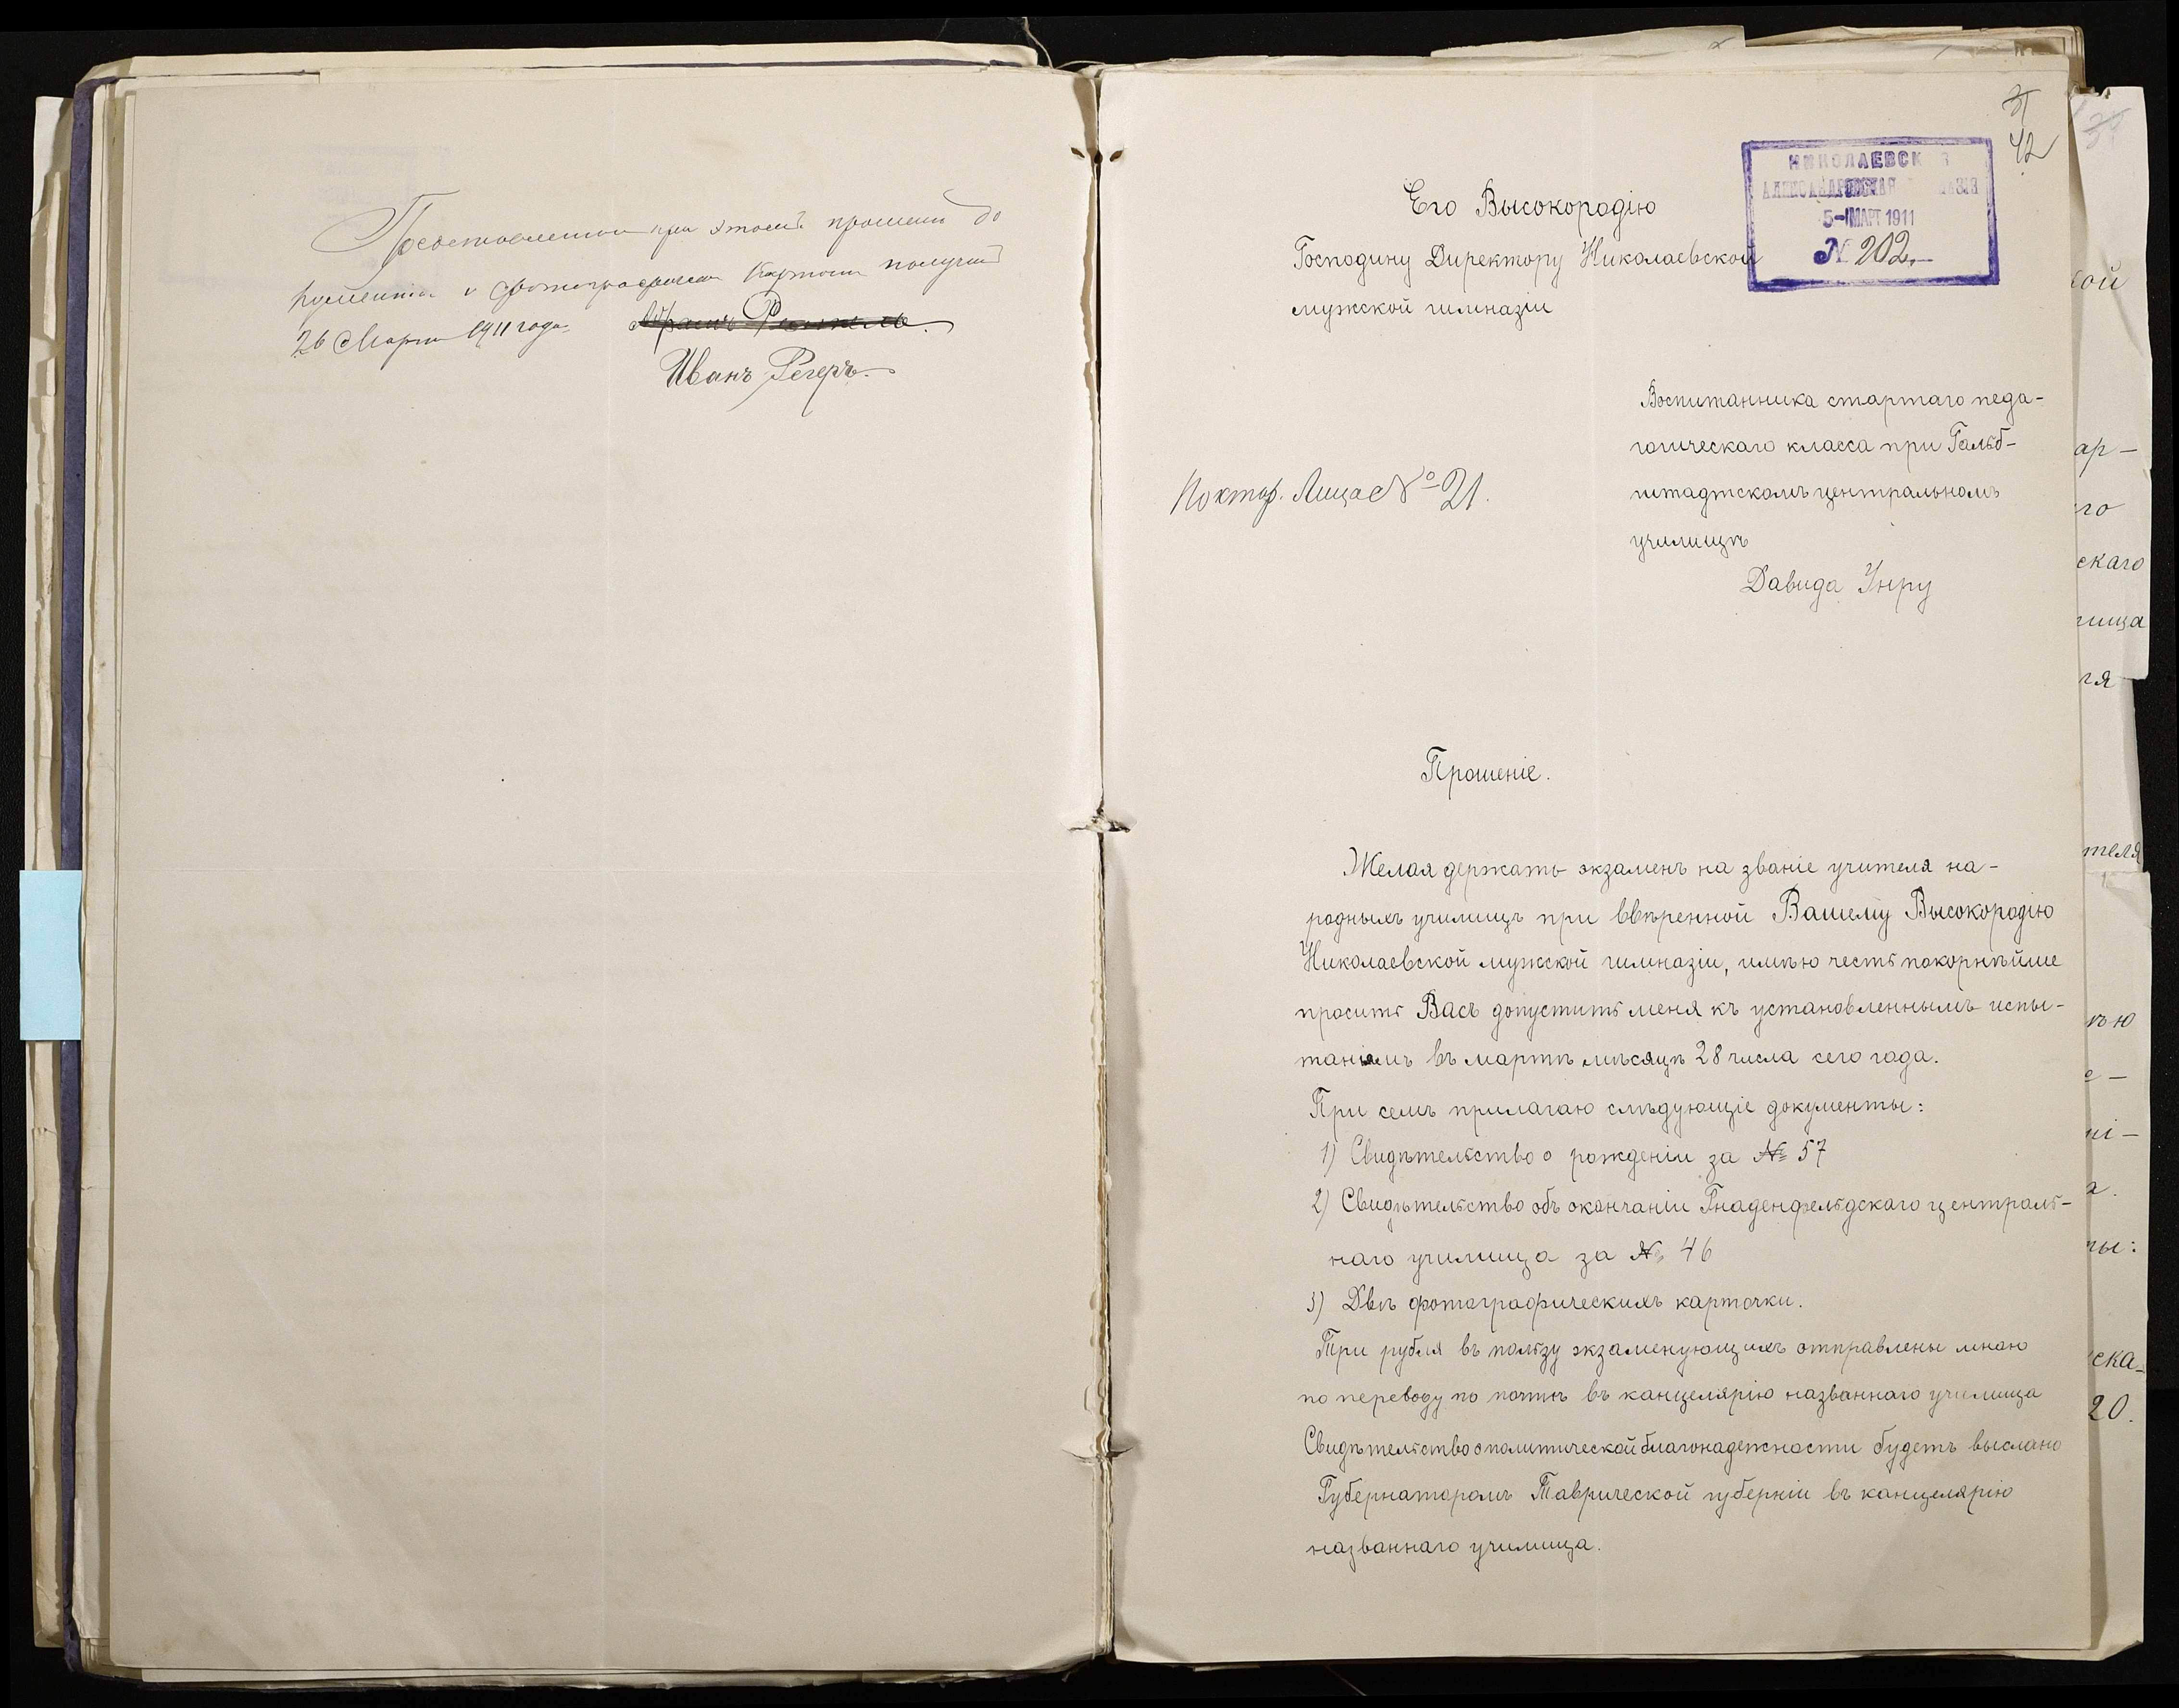 Представленные при этомъ прошеніи до
кументы и фотографическія карточки получилъ
26 Марта 1911 года.
Иванъ Регеръ.
31
42
НИКОЛАЕВСКАЯ
АЛЕКСАНДРОВСКАЯ ГИМНАЗІЯ
5-МАРТ 1911
№ 202.
Его Высокородію
Господину Директору Николаевской
мужской гимназіи
Воспитанника старшаго педа-
гогическаго класса при Гальб-
штадтскомъ центральномъ
училищѣ
Давида Унру
№ 21.
Прошеніе.
Желая держать экзаменъ на званіе учителя на-
родныхъ училищъ при ввѣренной Вашему Высокородію
Николаевской мужской гимназіи, имѣю честь покорнѣйше
просить Васъ допустить меня къ установленнымъ испы-
таніямъ въ мартѣ мѣсяцѣ 28 числа сего года.
При семъ прилагаю слѣдующіе документы:
1) Свидѣтельство о рожденіи за № 57
2) Свидѣтельство объ окончаніи Гнаденфельдскаго централь-
наго училища за № 46
3) Двѣ фотографическихъ карточки.
Три рубля въ пользу экзаменующихъ отправлены мною
по переводу по почтѣ въ канцелярію названнаго училища
Свидѣтельство о политической благонадежности будетъ выслано
Губернаторомъ Таврической губерніи въ канцелярію
названнаго училища.
кой
ар-
го
скаго
лища
ля
теля
ѣю
е-
ні-
а.
ты:
ска-
20.